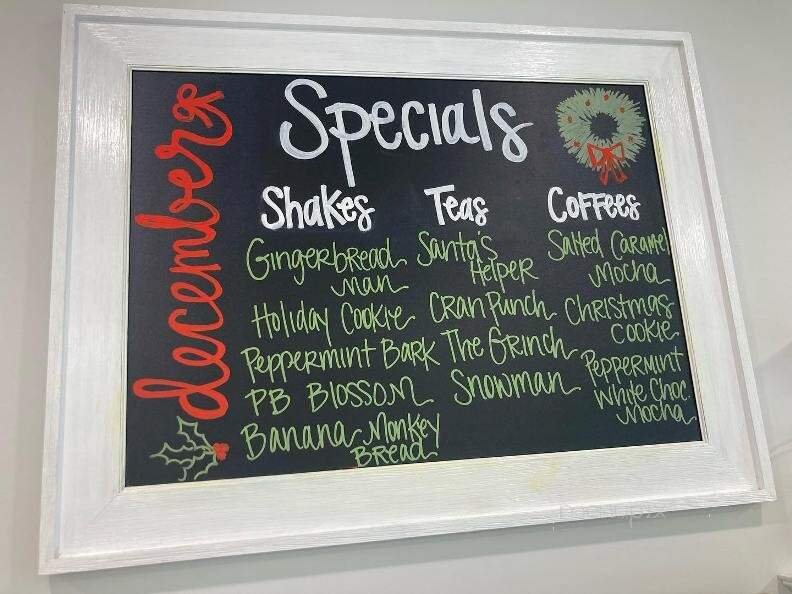 december
Specials
Shakes
Gingerbread
Man
Holiday Cookie
Peppermint Bark
PB Blossom
Banana Monkey
Bread
Teas
Santa's
Helper
Cran Punch
The Grinch
Snowman
Coffees
Salted Caramel
Mocha
Christmas
Cookie
Peppermint
White Choc
Mocha